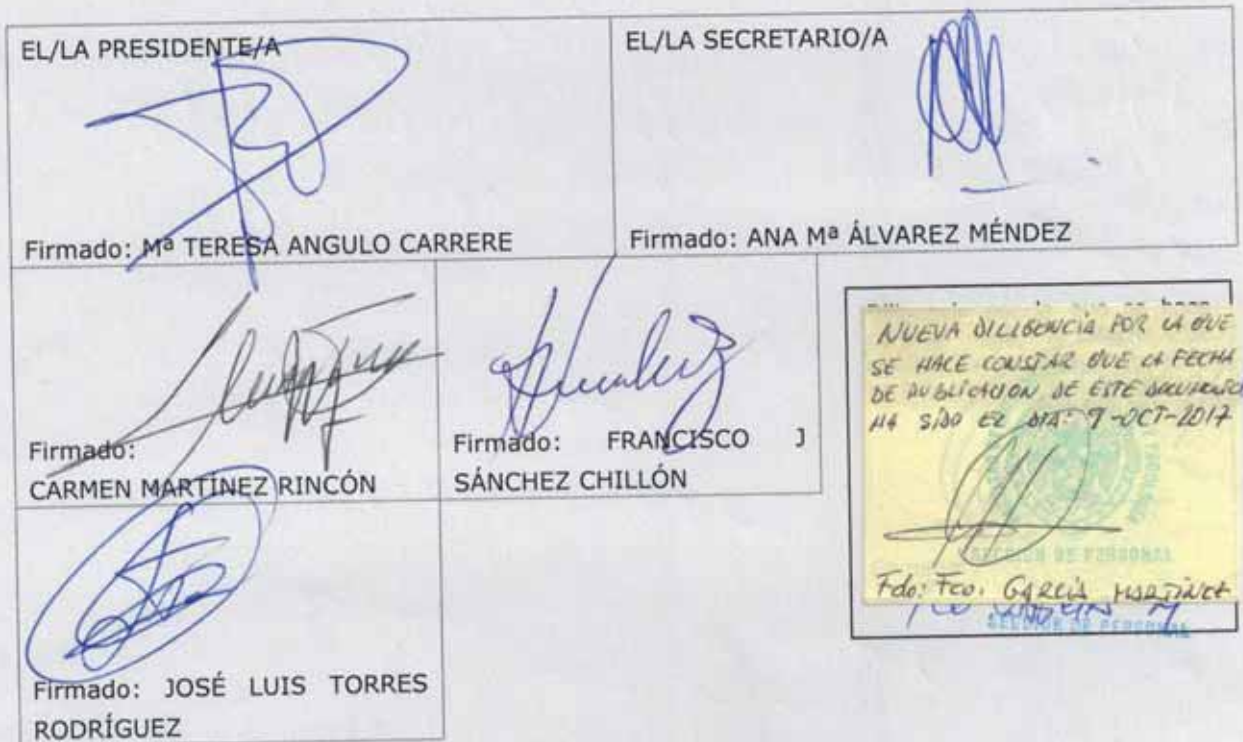 EL/LA PRESIDENTE/A
Firmado: Mª TERESA ANGULO CARRERE
EL/LA SECRETARIO/A
Firmado: ANA Mª ÁLVAREZ MÉNDEZ
Firmado:
CARMEN MARTÍNEZ RINCÓN
Firmado: FRANCISCO J
SÁNCHEZ CHILLÓN
NUEVA DILIGENCIA POR LA QUE
SE HACE CONSTAR QUE LA FECHA
DE PUBLICACION DE ESTE DOCUMENTO
HA SIDO EL DIA: 9-OCT-2017
SECCION DE PERSONAL
Fdo: Fco. GARCÍA MARTÍNEZ
SECCION DE PERSONAL
Firmado: JOSÉ LUIS TORRES
RODRÍGUEZ